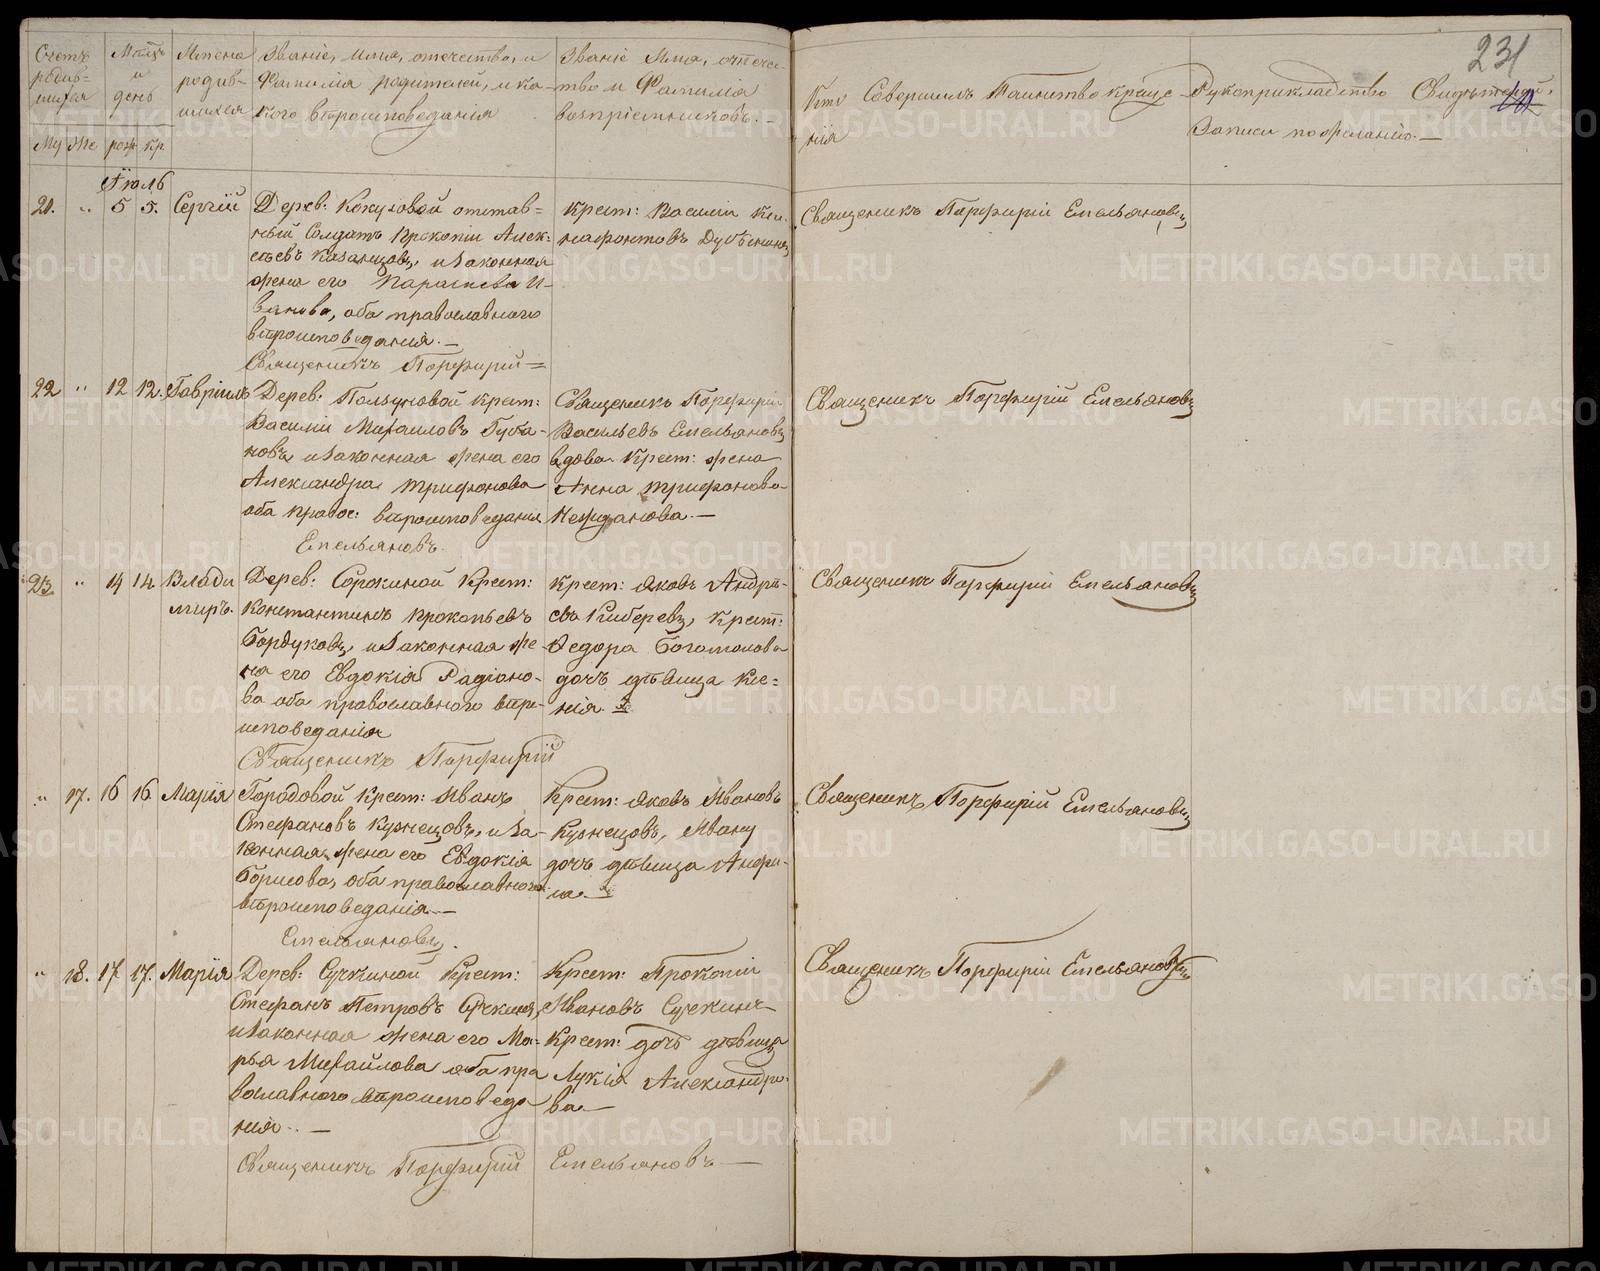 231
Счетъ родив=шихся
Му Же
Мѣсцъ и день
рож кр
Имена родив=шихся
Званіе, имя, отечество, и Фамилія родителей, и ка=кого вѣроисповеданія
Званіе Имя, отечес=тво и Фамилія воспріемниковъ.—
Кто Совершилъ Таинство Креще=нія
Рукоприкладство Свидѣтелей
Записи по желанію.—
Іюль
21. „ 5 5. Сергій
Дерев: Кокузовой отстав=
ный Солдатъ Прокопій Алек=
сѣевъ Казанцовъ, и Законная
жена его Параскева И=
ванова, оба православнаго
вѣроисповеданія.—
Священикъ Порфирій=
Крест: Василій Кси=
нафонтовъ Дубынинъ
Священикъ Порфирій Емельяновъ
22 „ 12 12. Гавріилъ
Дерев: Ползуновой крест:
Василій Михаиловъ Губа=
новъ и Законная жена его
Александра Трифонова
оба правос: вѣроисповедания
Емельяновъ
Священикъ Порфирій
Васильевъ Емельяновъ
вдова Крест: жена
Анна Трифонова
Нежданова.—
Священикъ Порфирій Емельяновъ
23. „ 14 14 Влади
миръ.
Дерев: Сорокиной Крест:
Константинъ Прокопьевъ
Бордуковъ, и Законная же
на его Евдокія Радіоно=
ва оба православнаго вѣро=
исповеданія
Священикъ Порфирій
Крест: Яковъ Андре=
евъ Киберевъ, Крест:
Ѳедора Богомолова
дочь дѣвица Ксе=
нія.
Священикъ Порфирій Емельяновъ
„ 17. 16 16 Марія
Городовой Крест: Иванъ
Стефановъ Кузнецовъ, и За=
конная жена его Евдокія
Борисова, оба православнаго
вѣроисповеданія.—
Емельяновъ.
Крест: Яковъ Ивановъ
Кузнецовъ, Ивану
дочь дѣвица Анфи=
са.—
Священикъ Порфирій Емельяновъ
„ 18. 17 17. Марія
Дерев: Сучкиной Крест:
Стефанъ Петровъ Сучкинъ,
и Законная жена его Ма=
рья Михайлова оба пра
вославнаго вѣроисповеда
нія.—
Священикъ Порфирій Емельяновъ—
Крест: Прокопій
Ивановъ Сучкинъ
Крест: дочь дѣвица
Лукія Александро=
ва.—
Священикъ Порфирій Емельяновъ
METRIKI.GASO-URAL.RU